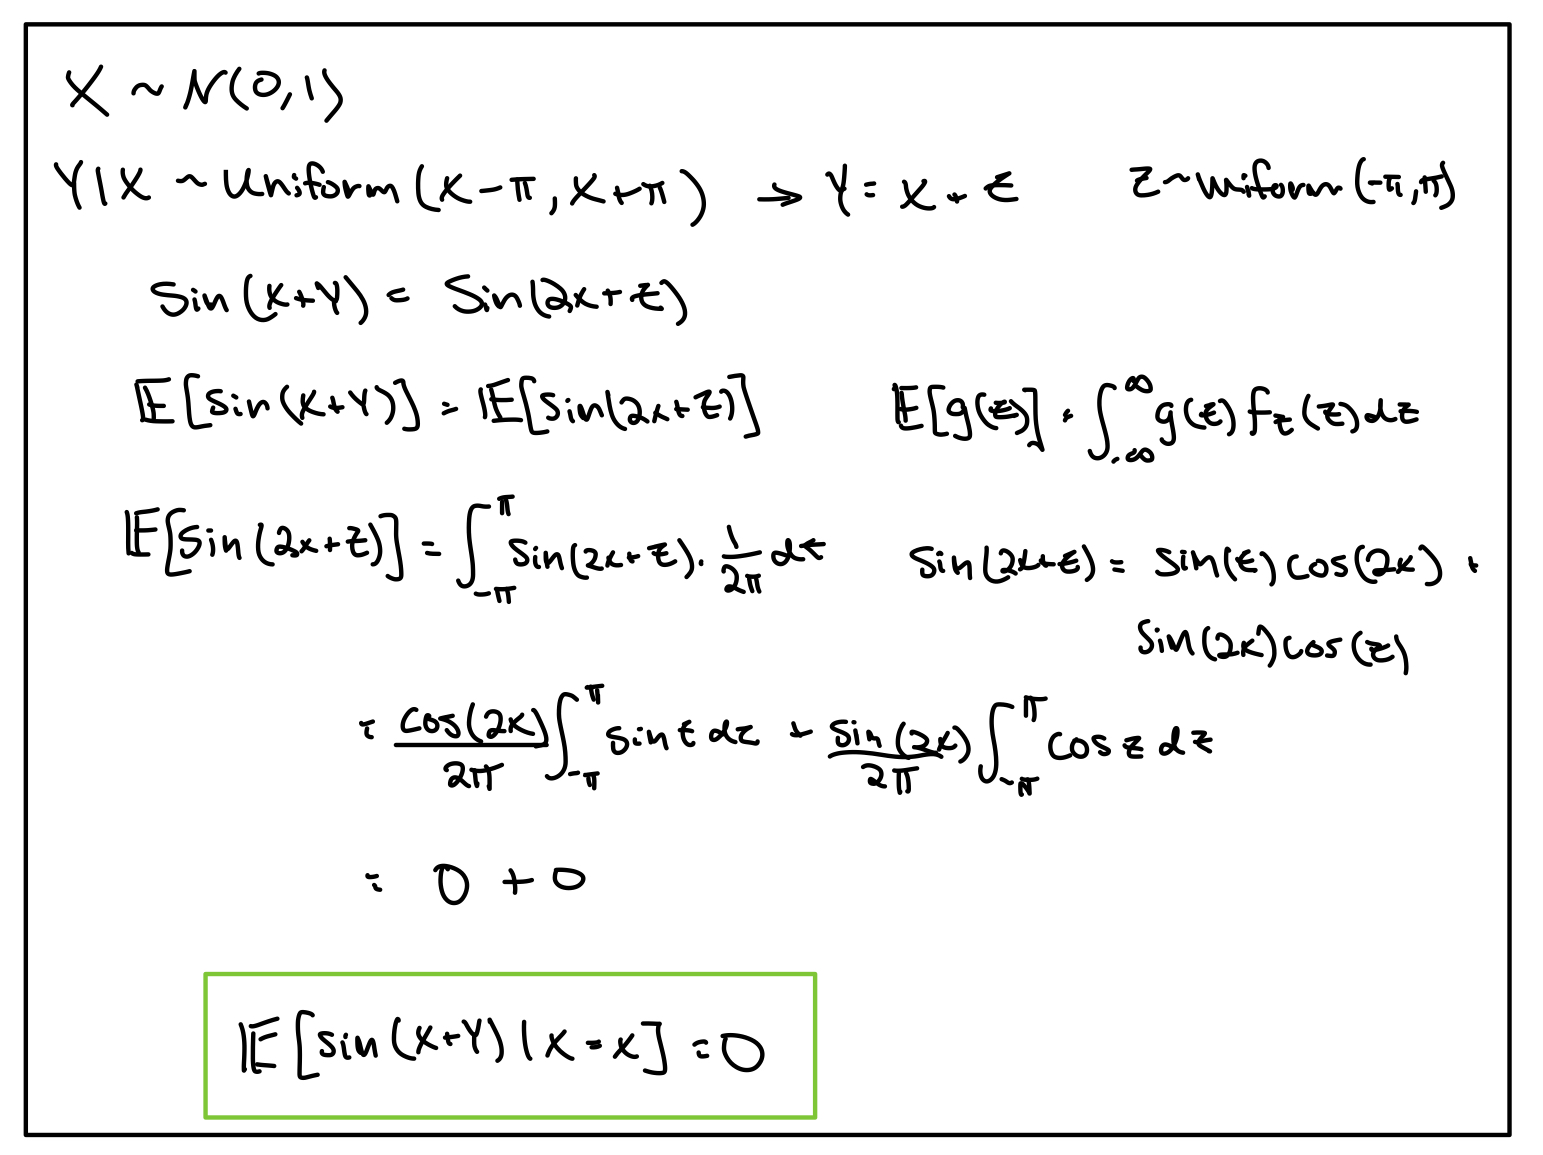 X ~ N(0,1)
Y|X ~ Uniform(X-π, X+π) → Y = X + Z   Z ~ Uniform(-π,π)
Sin(X+Y) = Sin(2x+z)
𝔼[Sin(X+Y)] = 𝔼[Sin(2x+z)]   𝔼[g(z)] = ∫_{-∞}^{∞} g(z) f_z(z) dz
𝔼[Sin(2x+z)] = ∫_{-π}^{π} Sin(2x+z) · 1/2π dz   Sin(2x+z) = Sin(z)cos(2x) +
Sin(2x)cos(z)
= cos(2x)/2π ∫_{-π}^{π} Sin z dz + Sin(2x)/2π ∫_{-π}^{π} cos z dz
= 0 + 0
𝔼[Sin(X+Y) | X = x] = 0